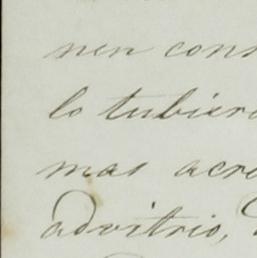 nen con
lo tubiera
mas acre
advitrio,